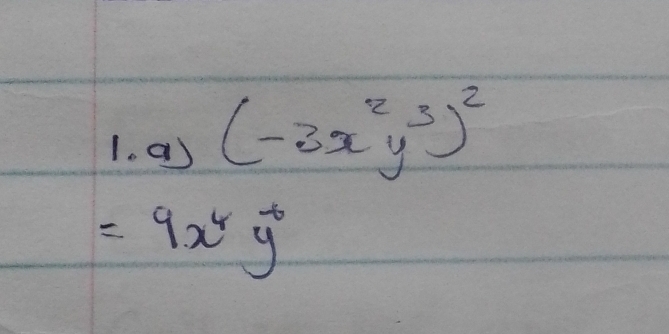 1. a) (-3x²y³)²
= 9x⁴ y⁶